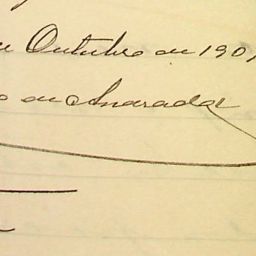 de Outubro de 190
o de Andrade